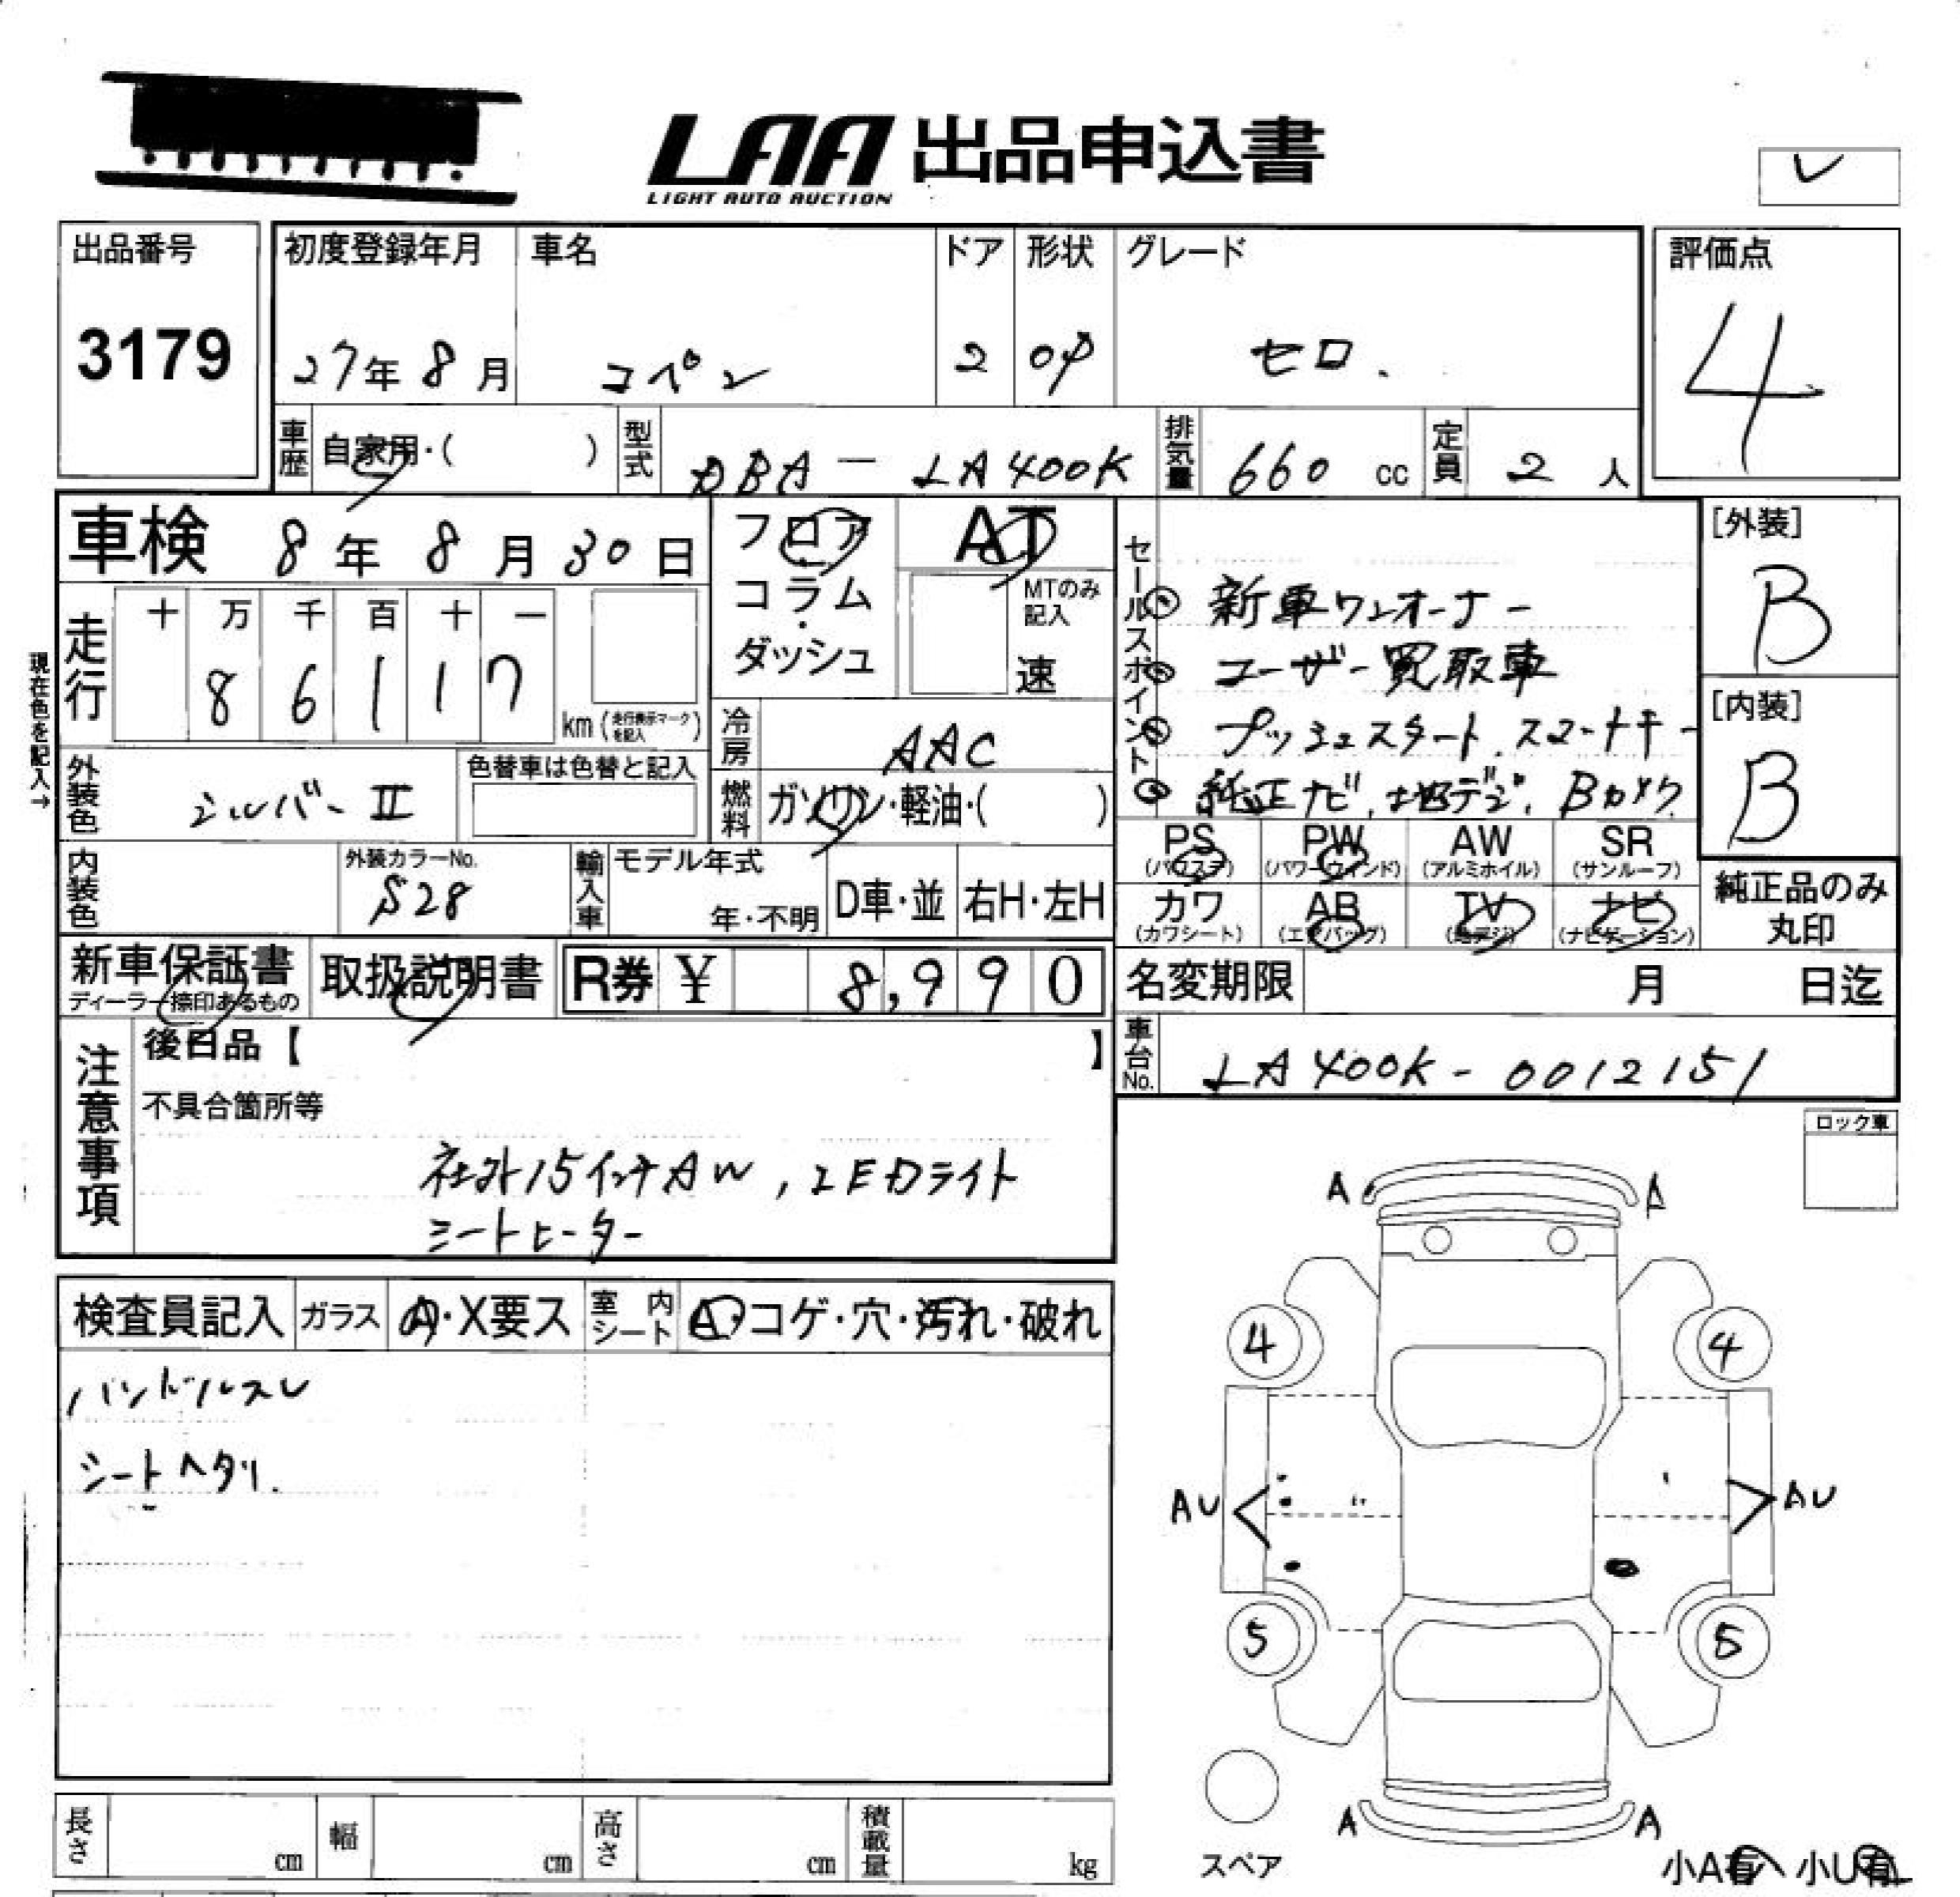 LAA 出品申込書
LIGHT AUTO AUCTION
レ
出品番号
3179
初度登録年月
27年 8月
車名
コペン
ドア
2
形状
OP
グレード
セロ.
評価点
4
車歴
自家用・( )
型式
DBA - LA400K
排気量
660 cc
定員
2 人
車検 8年 8月 30日
フロア
コラム
・
ダッシュ
AT
MTのみ記入
速
セールスポイント
◎ 新車ワンオーナー
◎ ユーザー買取車
◎ プッシュスタート、スマートキー
◎ 純正ナビ、地デジ、Bカメラ
[外装]
B
[内装]
B
現在色を記入→
走行
十 万 千 百 十 一
8 6 1 1 7
km (走行表示マークを記入)
冷房
AAC
外装色
シルバーⅡ
色替車は色替と記入
燃料
ガソリン・軽油・( )
内装色
外装カラーNo.
S28
輸入車
モデル年式
年・不明
D車・並
右H・左H
PS
(パワステ)
PW
(パワーウインド)
AW
(アルミホイル)
SR
(サンルーフ)
カワ
(カワシート)
AB
(エアバッグ)
TV
(地デジ)
ナビ
(ナビゲーション)
純正品のみ
丸印
新車保証書
ディーラー捺印あるもの
取扱説明書
R券 ¥ 8,990
名変期限 月 日迄
車台No.
LA400K-0012151
注意事項
後日品【 】
不具合箇所等
社外15インチAW, LEDライト
シートヒーター
ロック車
検査員記入
ガラス
A・X要ス
室内シート
A・コゲ・穴・汚れ・破れ
ハンドルスレ
シートヘタリ.
A A
4 4
AU AU
5 5
A A
スペア
小A有 小U有
長さ cm
幅 cm
高さ cm
積載量 kg